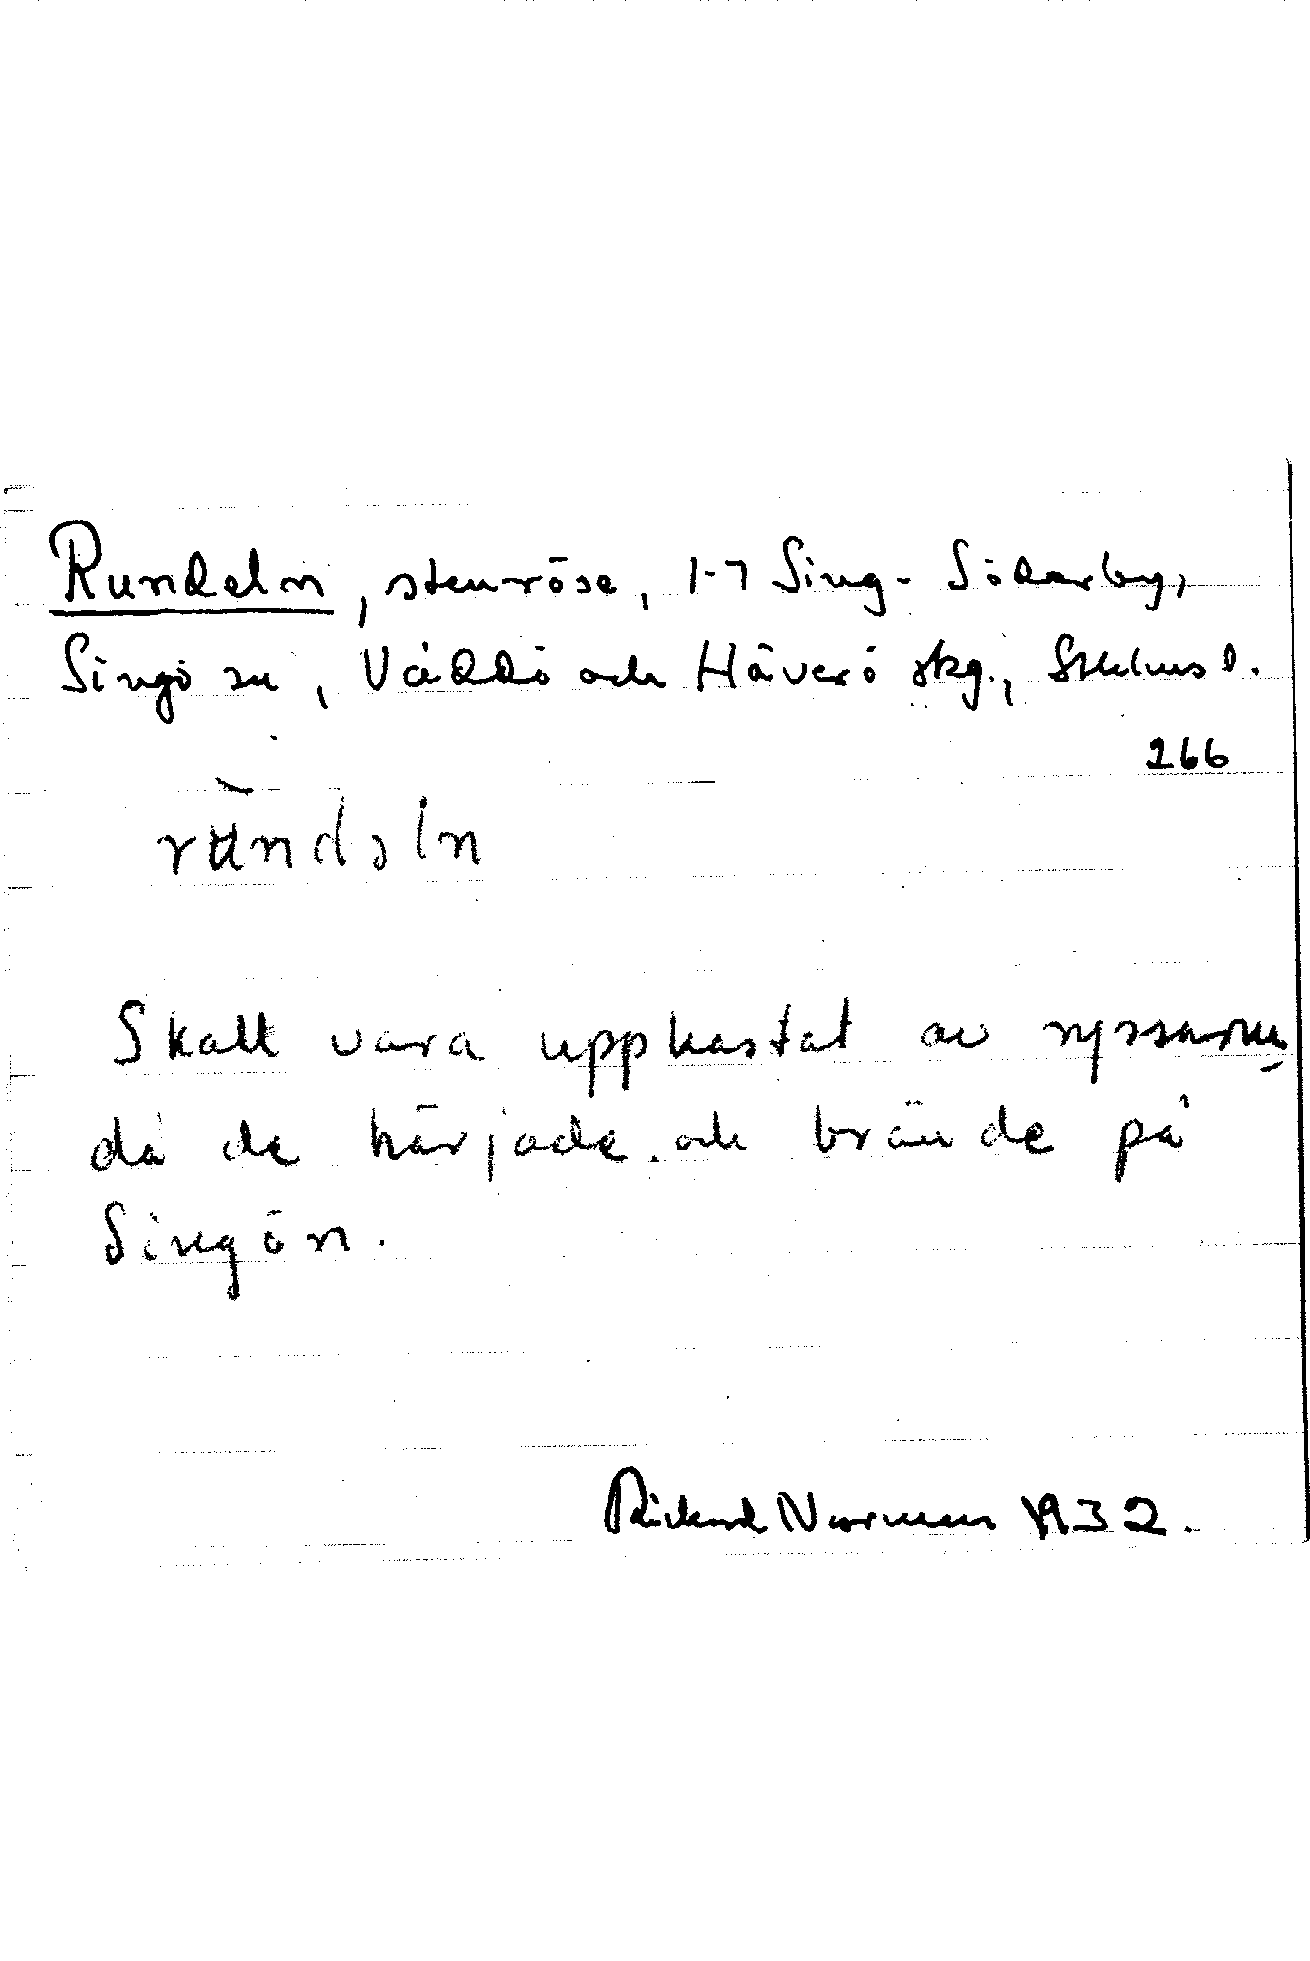 Rundeln, stenröse, 1-7 Sing-Söderby,
Singö sn, Väddö och Häverö skg., Sthlms l.
266
Skall vara upphastat av ryssarna
då de härjade och brände på
Singön.
Rickard Norman 1932.